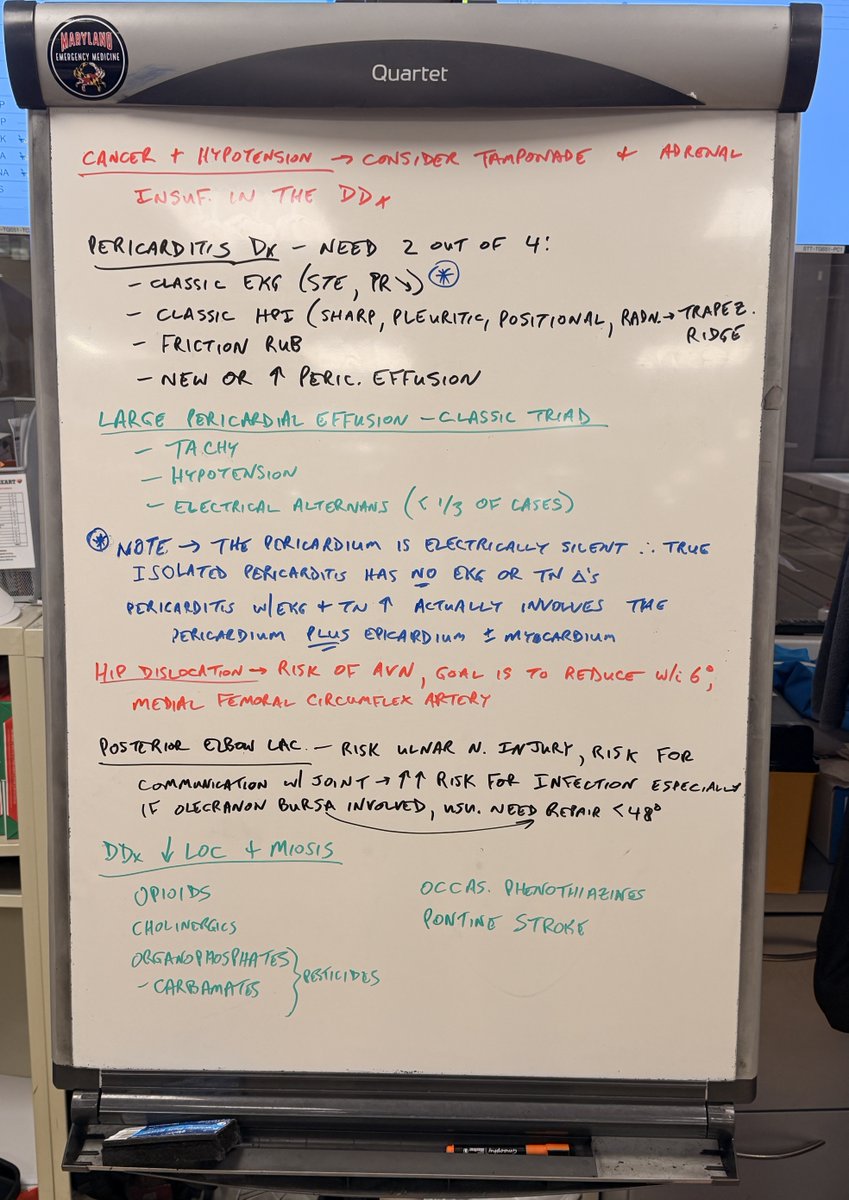 MARYLAND
EMERGENCY MEDICINE
Quartet
CANCER + HYPOTENSION → CONSIDER TAMPONADE + ADRENAL
INSUF. IN THE DDx
PERICARDITIS Dx – NEED 2 OUT OF 4:
– CLASSIC EKG (STE, PR↘) *
– CLASSIC HPI (SHARP, PLEURITIC, POSITIONAL, RADN. → TRAPEZ.
RIDGE
– FRICTION RUB
– NEW OR ↑ PERIC. EFFUSION
LARGE PERICARDIAL EFFUSION – CLASSIC TRIAD
– TACHY
– HYPOTENSION
– ELECTRICAL ALTERNANS (< 1/3 OF CASES)
* NOTE → THE PERICARDIUM IS ELECTRICALLY SILENT ∴ TRUE
ISOLATED PERICARDITIS HAS NO EKG OR TN Δ'S
PERICARDITIS W/EKG + TN ↑ ACTUALLY INVOLVES THE
PERICARDIUM PLUS EPICARDIUM ± MYOCARDIUM
HIP DISLOCATION → RISK OF AVN, GOAL IS TO REDUCE W/i 6°;
MEDIAL FEMORAL CIRCUMFLEX ARTERY
POSTERIOR ELBOW LAC. – RISK ULNAR N. INJURY, RISK FOR
COMMUNICATION W/ JOINT → ↑↑ RISK FOR INFECTION ESPECIALLY
IF OLECRANON BURSA INVOLVED, USU. NEED REPAIR < 48°
DDx ↓ LOC + MIOSIS
OPIOIDS
CHOLINERGICS
ORGANOPHOSPHATES
– CARBAMATES
} PESTICIDES
OCCAS. PHENOTHIAZINES
PONTINE STROKE